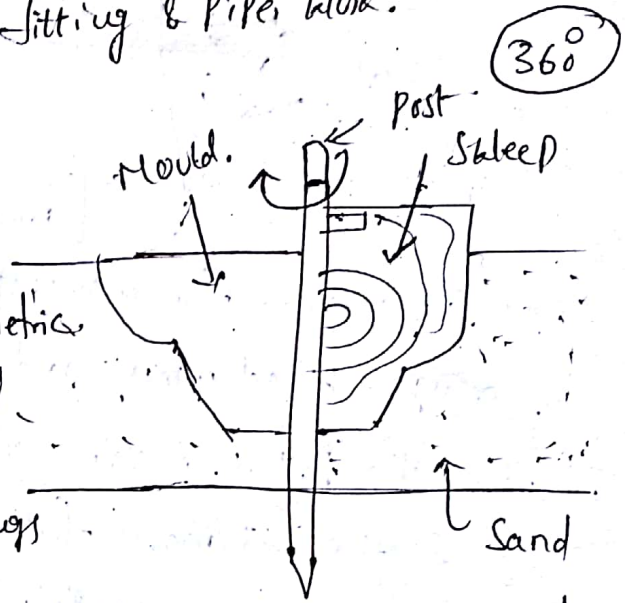 fitting & Pipe,
360°
Post
Mould.
Skleep
etric
Sand
ugs